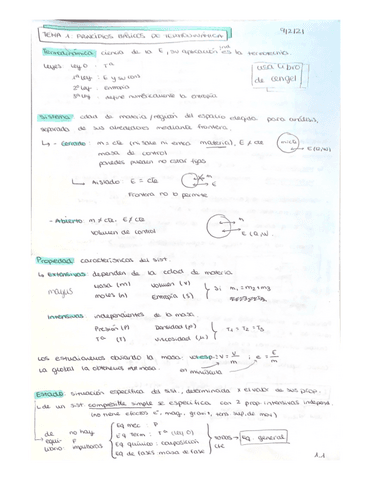 TEMA 1. PRINCIPIOS BÁSICOS DE TERMODINÁMICA 9/2/21
Termodinámica ciencia de la E, su aplicación es la
usa libro
de cengel
Leyes Ley 0: Tª
1ª Ley: E y W cont
2ª Ley: Entropía
3ª Ley: define numéricamente la entropía
Sistema cdad de materia / región del espacio elegida para análisis,
separada de sus alrededores mediante frontera.
- Cerrado: m = cte (ni sale ni entra materia), E ≠ cte
masa de control
paredes pueden no estar fijas
m=cte
E (Q,W)
Aislado: E = cte
Frontera no lo permite
m
E
- Abierto: m ≠ cte, E ≠ cte
volumen de control
m
E (Q,W).
Propiedad características del sist.
Extensivas dependen de la cdad de materia
mayus
masa (m) volumen (V)
moles (n) Entropía (S)
Si m1 = m2 + m3
Intensivas independientes de la masa
Presión (P) Densidad (ρ)
Tª (T) Viscosidad (μ)
T1 = T2 = T3
Los estudiaremos obviando la masa: v = V/m ; e = E/m
La global la obtenemos
en minúscula
Estado situación específica del sist., determinada x el valor de sus prop.
de un sist compresible simple se especifica con 2 prop. intensivas independ.
(no tiene efectos Eª, mag, gravit, tens. sup, de mov)
de equilibrio: no hay impulsoras
Eq mec: P
Eq term: Tª (Ley 0)
Eq químico: composición cte
Eq de fases masa de fase
todos → Eq. general
1.1